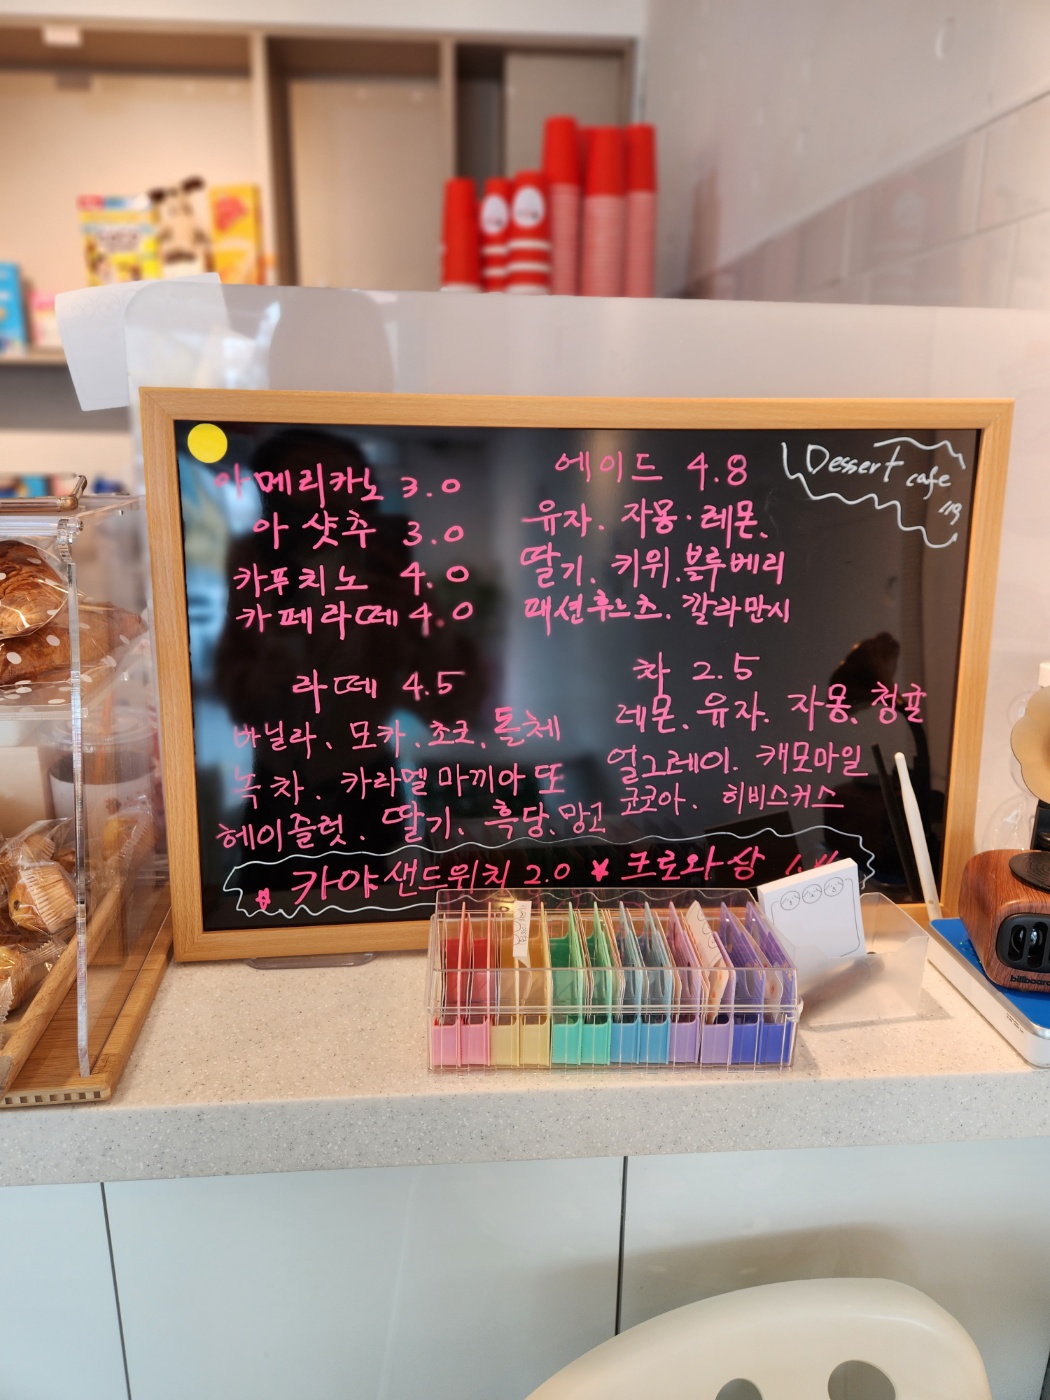 아메리카노 3.0
아샷추 3.0
카푸치노 4.0
카페라떼 4.0
에이드 4.8
유자. 자몽. 레몬.
딸기. 키위. 블루베리
패션후르츠. 깔라만시
Dessert cafe
라떼 4.5
바닐라. 모카. 초코. 돌체
녹차. 카라멜마끼아또
헤이즐넛. 딸기. 흑당. 망고
차 2.5
레몬. 유자. 자몽. 청귤
얼그레이. 캐모마일
코코아. 히비스커스
카야샌드위치 2.0 크로와상
billboard